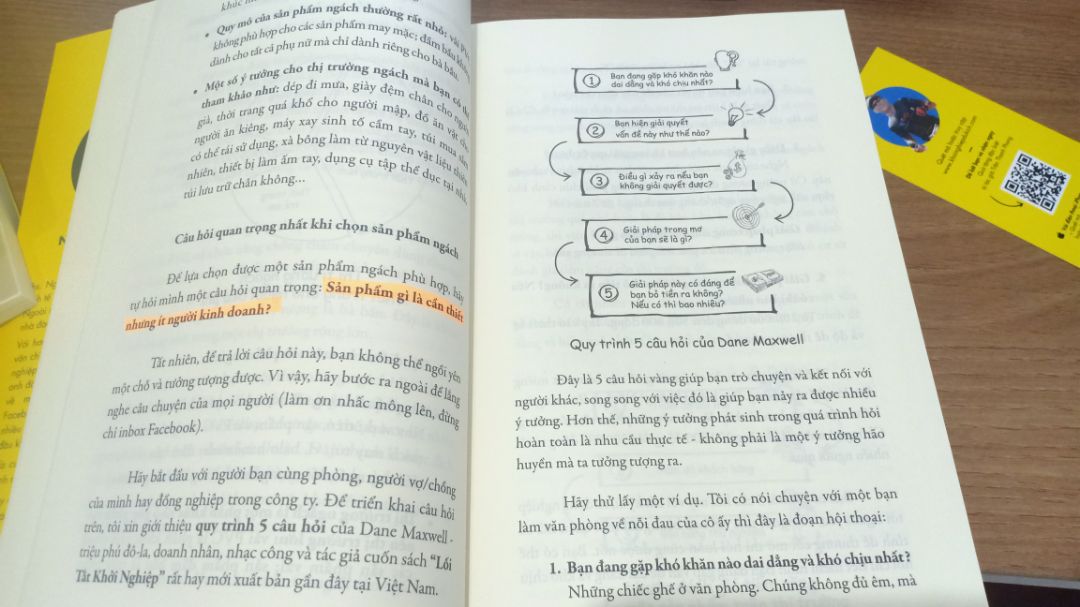 • Quy mô của sản phẩm ngách thường rất nhỏ:
không phù hợp cho các sản phẩm may mặc; đầm bầu không
dành cho tất cả phụ nữ mà chỉ dành riêng cho bà bầu.
• Một số ý tưởng cho thị trường ngách mà bạn có thể
tham khảo như: dép đi mưa, giày đệm chân cho người
già, thời trang quá khổ cho người mập, đồ ăn vặt cho
người ăn kiêng, máy xay sinh tố cầm tay, túi mua sắm
có thể tái sử dụng, xà bông làm từ nguyên vật liệu thiên
nhiên, thiết bị làm ấm tay, dụng cụ tập thể dục tại nhà,
túi lưu trữ chân không...
Câu hỏi quan trọng nhất khi chọn sản phẩm ngách
Để lựa chọn được một sản phẩm ngách phù hợp, hãy
tự hỏi mình một câu hỏi quan trọng: Sản phẩm gì là cần thiết
nhưng ít người kinh doanh?
Tất nhiên, để trả lời câu hỏi này, bạn không thể ngồi yên
một chỗ và tưởng tượng được. Vì vậy, hãy bước ra ngoài để lắng
nghe câu chuyện của mọi người (làm ơn nhấc mông lên, đừng
chỉ inbox Facebook).
Hãy bắt đầu với người bạn cùng phòng, người vợ/chồng
của mình hay đồng nghiệp trong công ty. Để triển khai câu hỏi
trên, tôi xin giới thiệu quy trình 5 câu hỏi của Dane Maxwell -
triệu phú đô-la, doanh nhân, nhạc công và tác giả cuốn sách "Lối
Tắt Khởi Nghiệp" rất hay mới xuất bản gần đây tại Việt Nam.
1 Bạn đang gặp khó khăn nào
dai dẳng và khó chịu nhất?
2 Bạn hiện giải quyết
vấn đề này như thế nào?
3 Điều gì xảy ra nếu bạn
không giải quyết được?
4 Giải pháp trong mơ
của bạn sẽ là gì?
5 Giải pháp này có đáng để
bạn bỏ tiền ra không?
Nếu có thì bao nhiêu?
Quy trình 5 câu hỏi của Dane Maxwell
Đây là 5 câu hỏi vàng giúp bạn trò chuyện và kết nối với
người khác, song song với việc đó là giúp bạn nảy ra được nhiều
ý tưởng. Hơn thế, những ý tưởng phát sinh trong quá trình hỏi
hoàn toàn là nhu cầu thực tế - không phải là một ý tưởng hão
huyền mà ta tưởng tượng ra.
Hãy thử lấy một ví dụ. Tôi có nói chuyện với một bạn
làm văn phòng về nỗi đau của cô ấy thì đây là đoạn hội thoại:
1. Bạn đang gặp khó khăn nào dai dẳng và khó chịu nhất?
Những chiếc ghế ở văn phòng. Chúng không đủ êm, mà